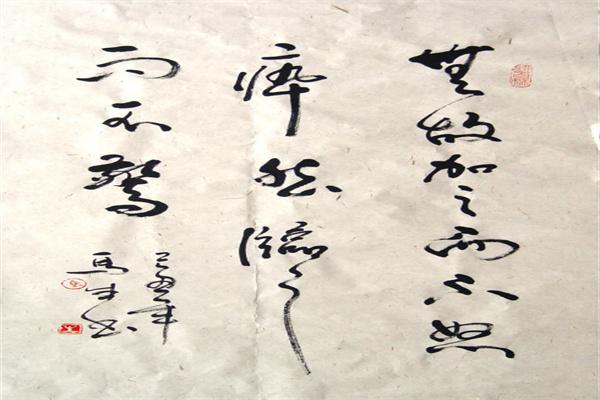 無故加之而不怒
瘁然臨之
而不驚